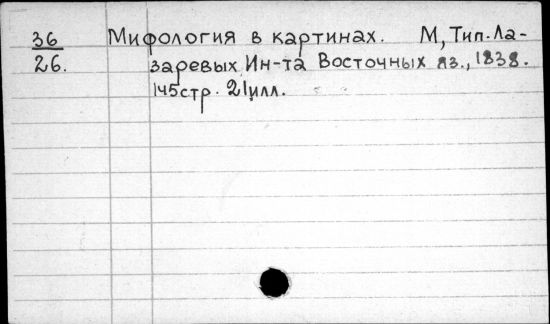 36 Мифология в картинах. М, Тип. Ла-
26. заревых Ин-та Восточных яз., 1838.
145 стр. 21 илл.